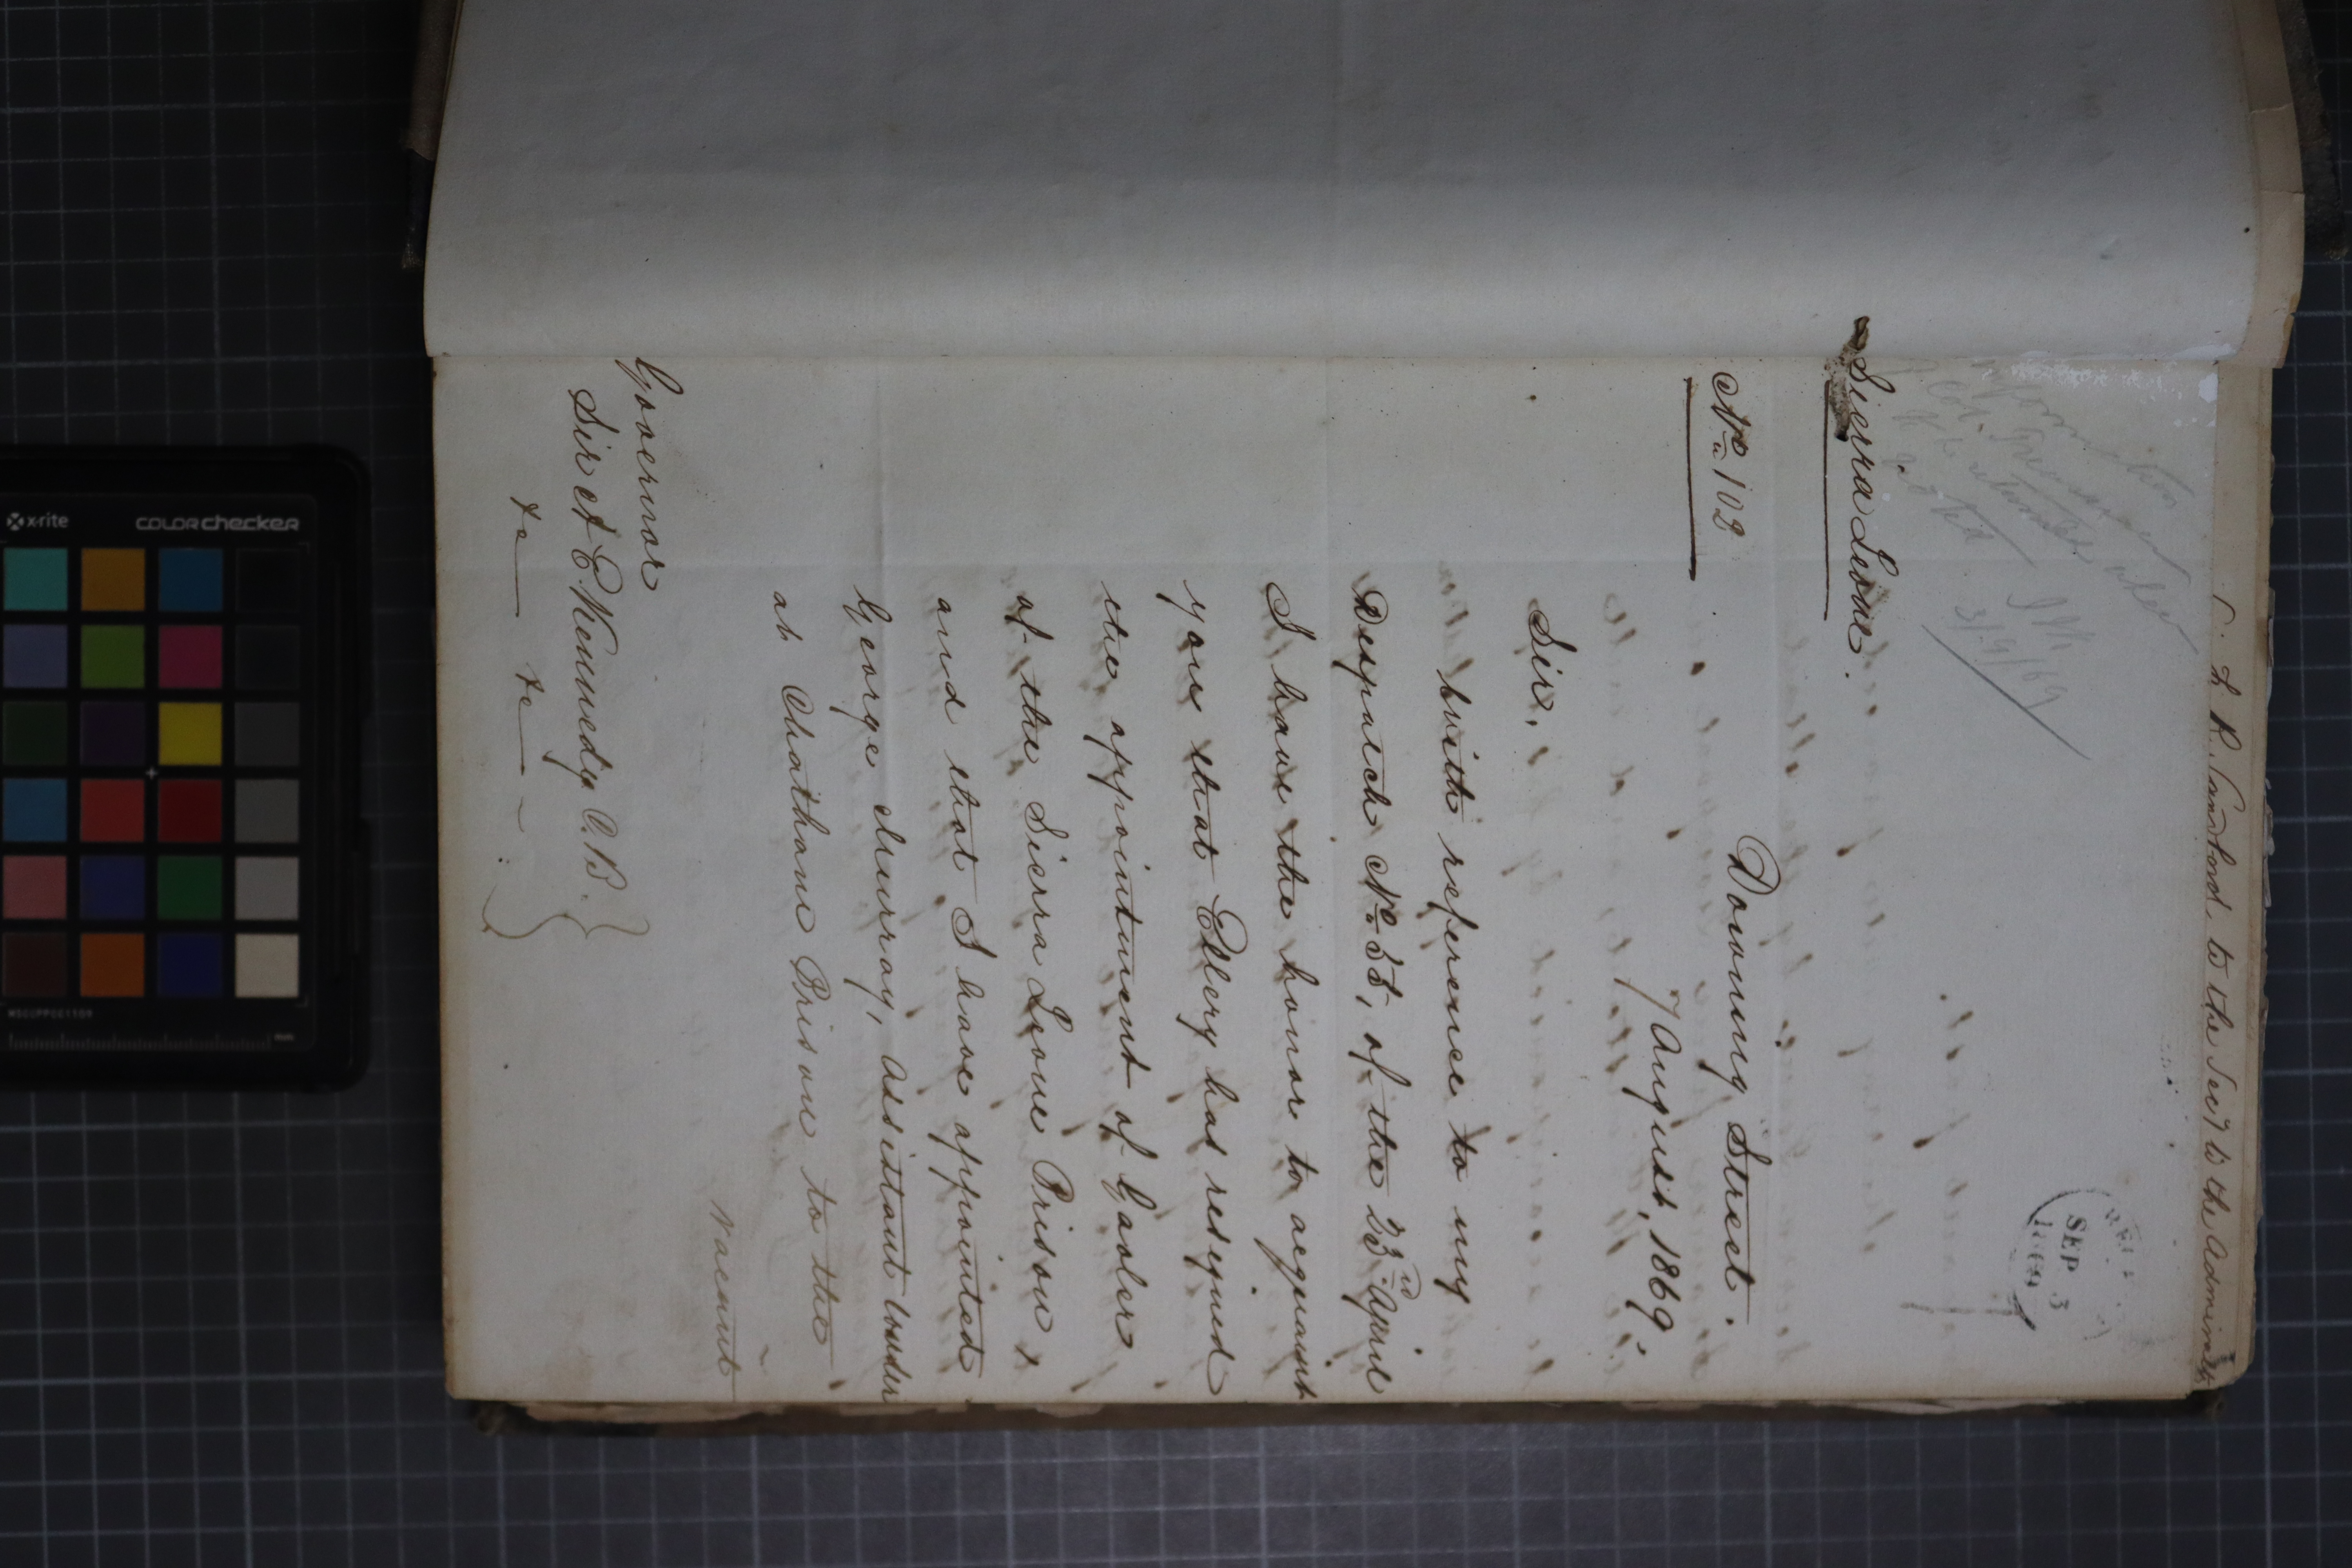 L. R. to the Secy to the Admiralty
SEP 3
1869
3/9/69
Sierra Leone.
No 102
Downing Street.
7 August, 1869.
Sir,
With reference to my
Despatch No 35, of the 23rd April
I have the honor to acquaint
you that Ellery has resigned
the appointment of Gaoler
of the Sierra Leone Prison,
and that I have appointed
George Murray, Assistant Warder
at Chatham Prison to the
vacant
Governor
Sir A E Kennedy C.B.
&c &c
x-rite
colorchecker
MSCCPPCC1109
mm